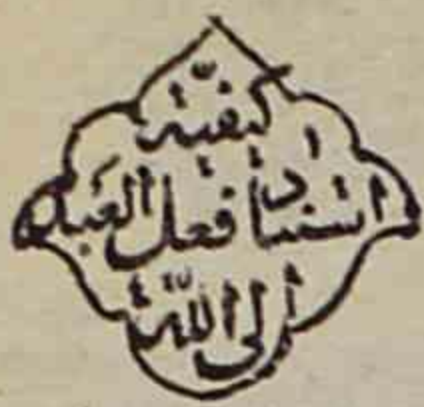 كيفية
استناد فعل العبد
إلى الله